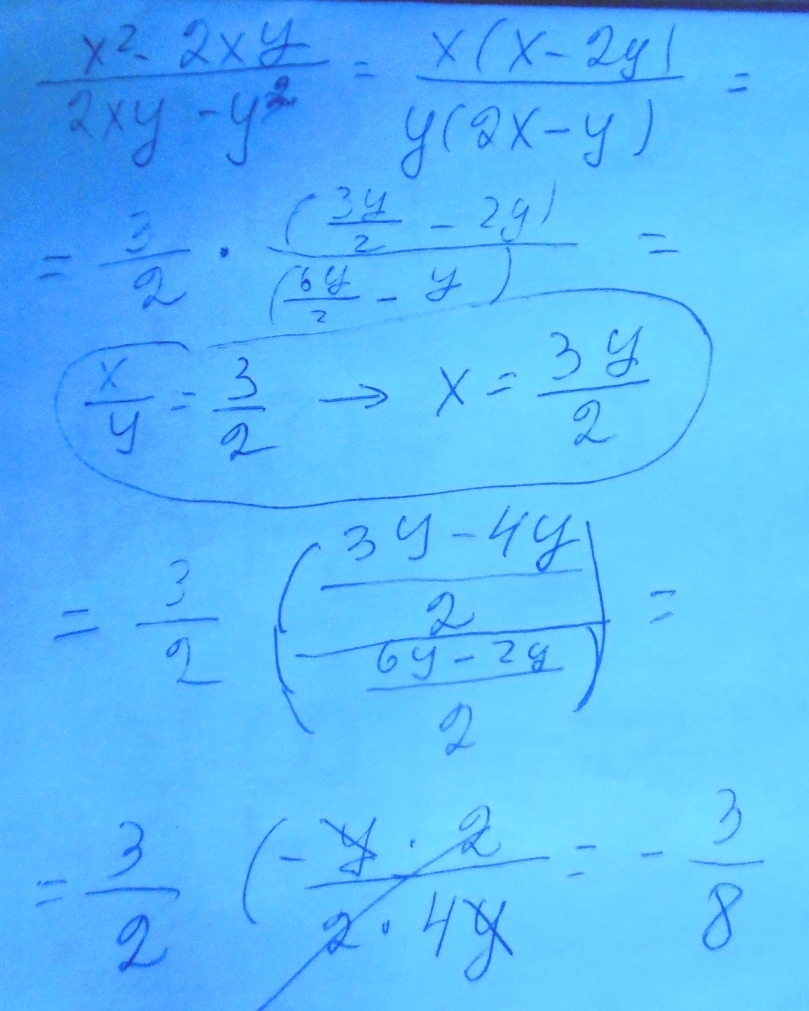 (x² - 2xy)/(2xy - y²) = x(x - 2y)/y(2x - y) =
= 3/2 · (3y/2 - 2y)/(6y/2 - y) =
x/y = 3/2 → x = 3y/2
= 3/2 ((3y - 4y)/2)/((6y - 2y)/2) =
= 3/2 (-y · 2/2 · 4y = - 3/8